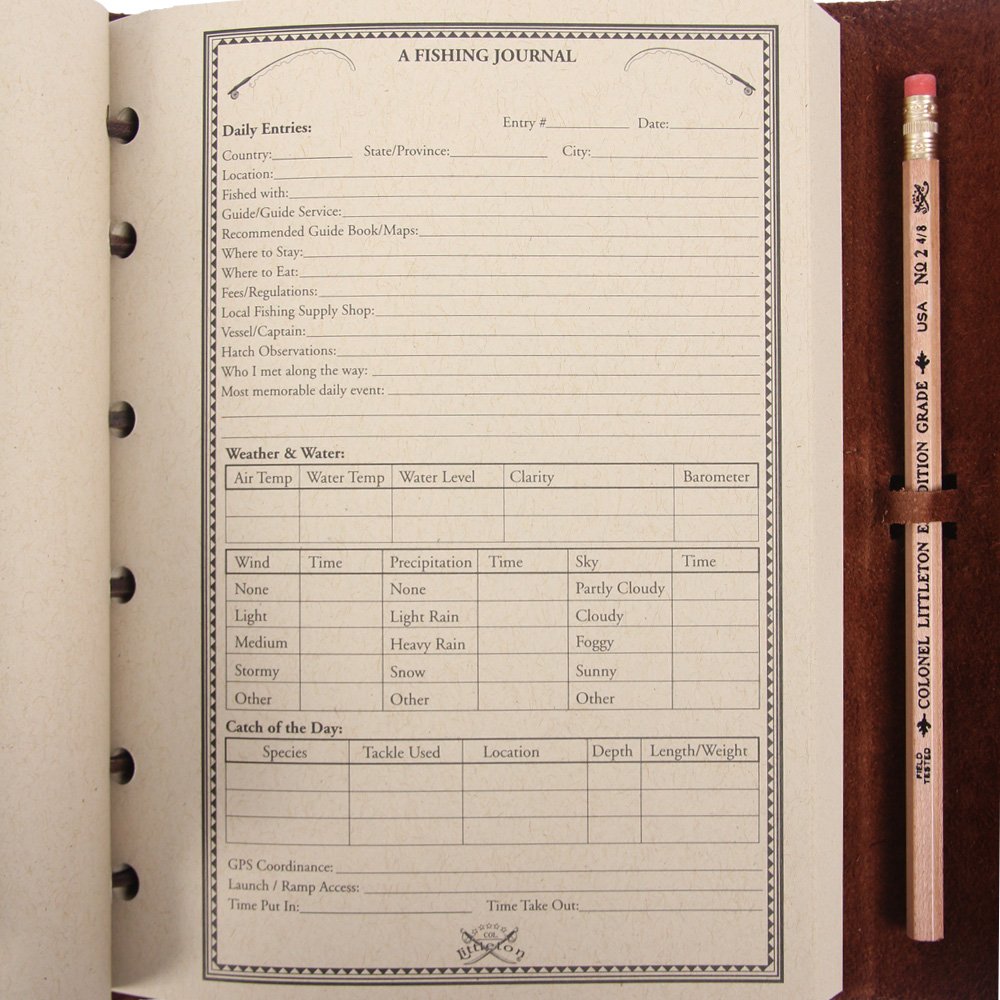 A FISHING JOURNAL
Daily Entries: Entry #__________ Date:__________
Country:__________ State/Province:__________ City:__________
Location:
Fished with:
Guide/Guide Service:
Recommended Guide Book/Maps:
Where to Stay:
Where to Eat:
Fees/Regulations:
Local Fishing Supply Shop:
Vessel/Captain:
Hatch Observations:
Who I met along the way:
Most memorable daily event:
Weather & Water:
Air Temp Water Temp Water Level Clarity Barometer
Wind Time Precipitation Time Sky Time
None None Partly Cloudy
Light Light Rain Cloudy
Medium Heavy Rain Foggy
Stormy Snow Sunny
Other Other Other
Catch of the Day:
Species Tackle Used Location Depth Length/Weight
GPS Coordinance:
Launch / Ramp Access:
Time Put In:__________ Time Take Out:__________
COL.
Littleton
FIELD
TESTED
COLONEL LITTLETON DITION GRADE USA NO 2 4/8